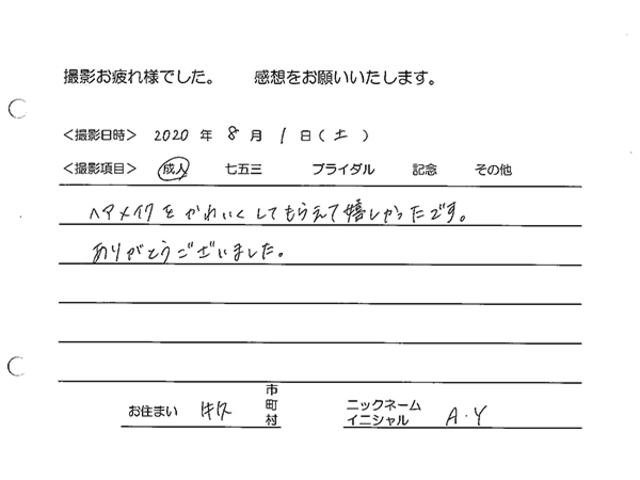 撮影お疲れ様でした。 感想をお願いいたします。
<撮影日時> 2020 年 8 月 1 日(土)
<撮影項目> 成人 七五三 ブライダル 記念 その他
ヘアメイクをかわいくしてもらえて嬉しかったです。
ありがとうございました。
お住まい 市町村 ニックネーム イニシャル A.Y